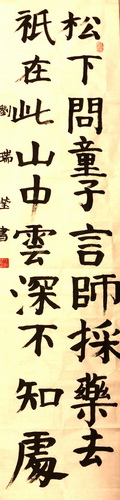 松下問童子言師採藥去
祇在此山中雲深不知處
劉瑞瑩書